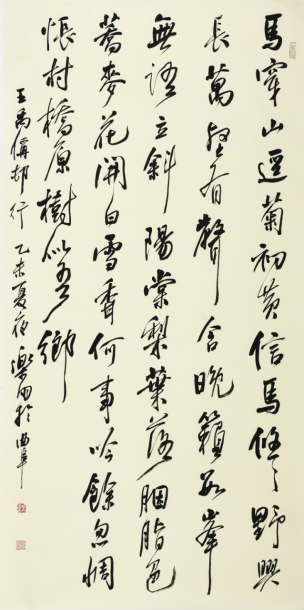 馬穿山逕菊初黃信馬悠々野興
長萬壑有聲含晚籟數峯
無語立斜陽棠梨葉落胭脂色
蕎麥花開白雪香何事吟餘忽惆
悵村橋原樹似吾鄉
王禹偁邨行 乙未夏夜 於曲阜